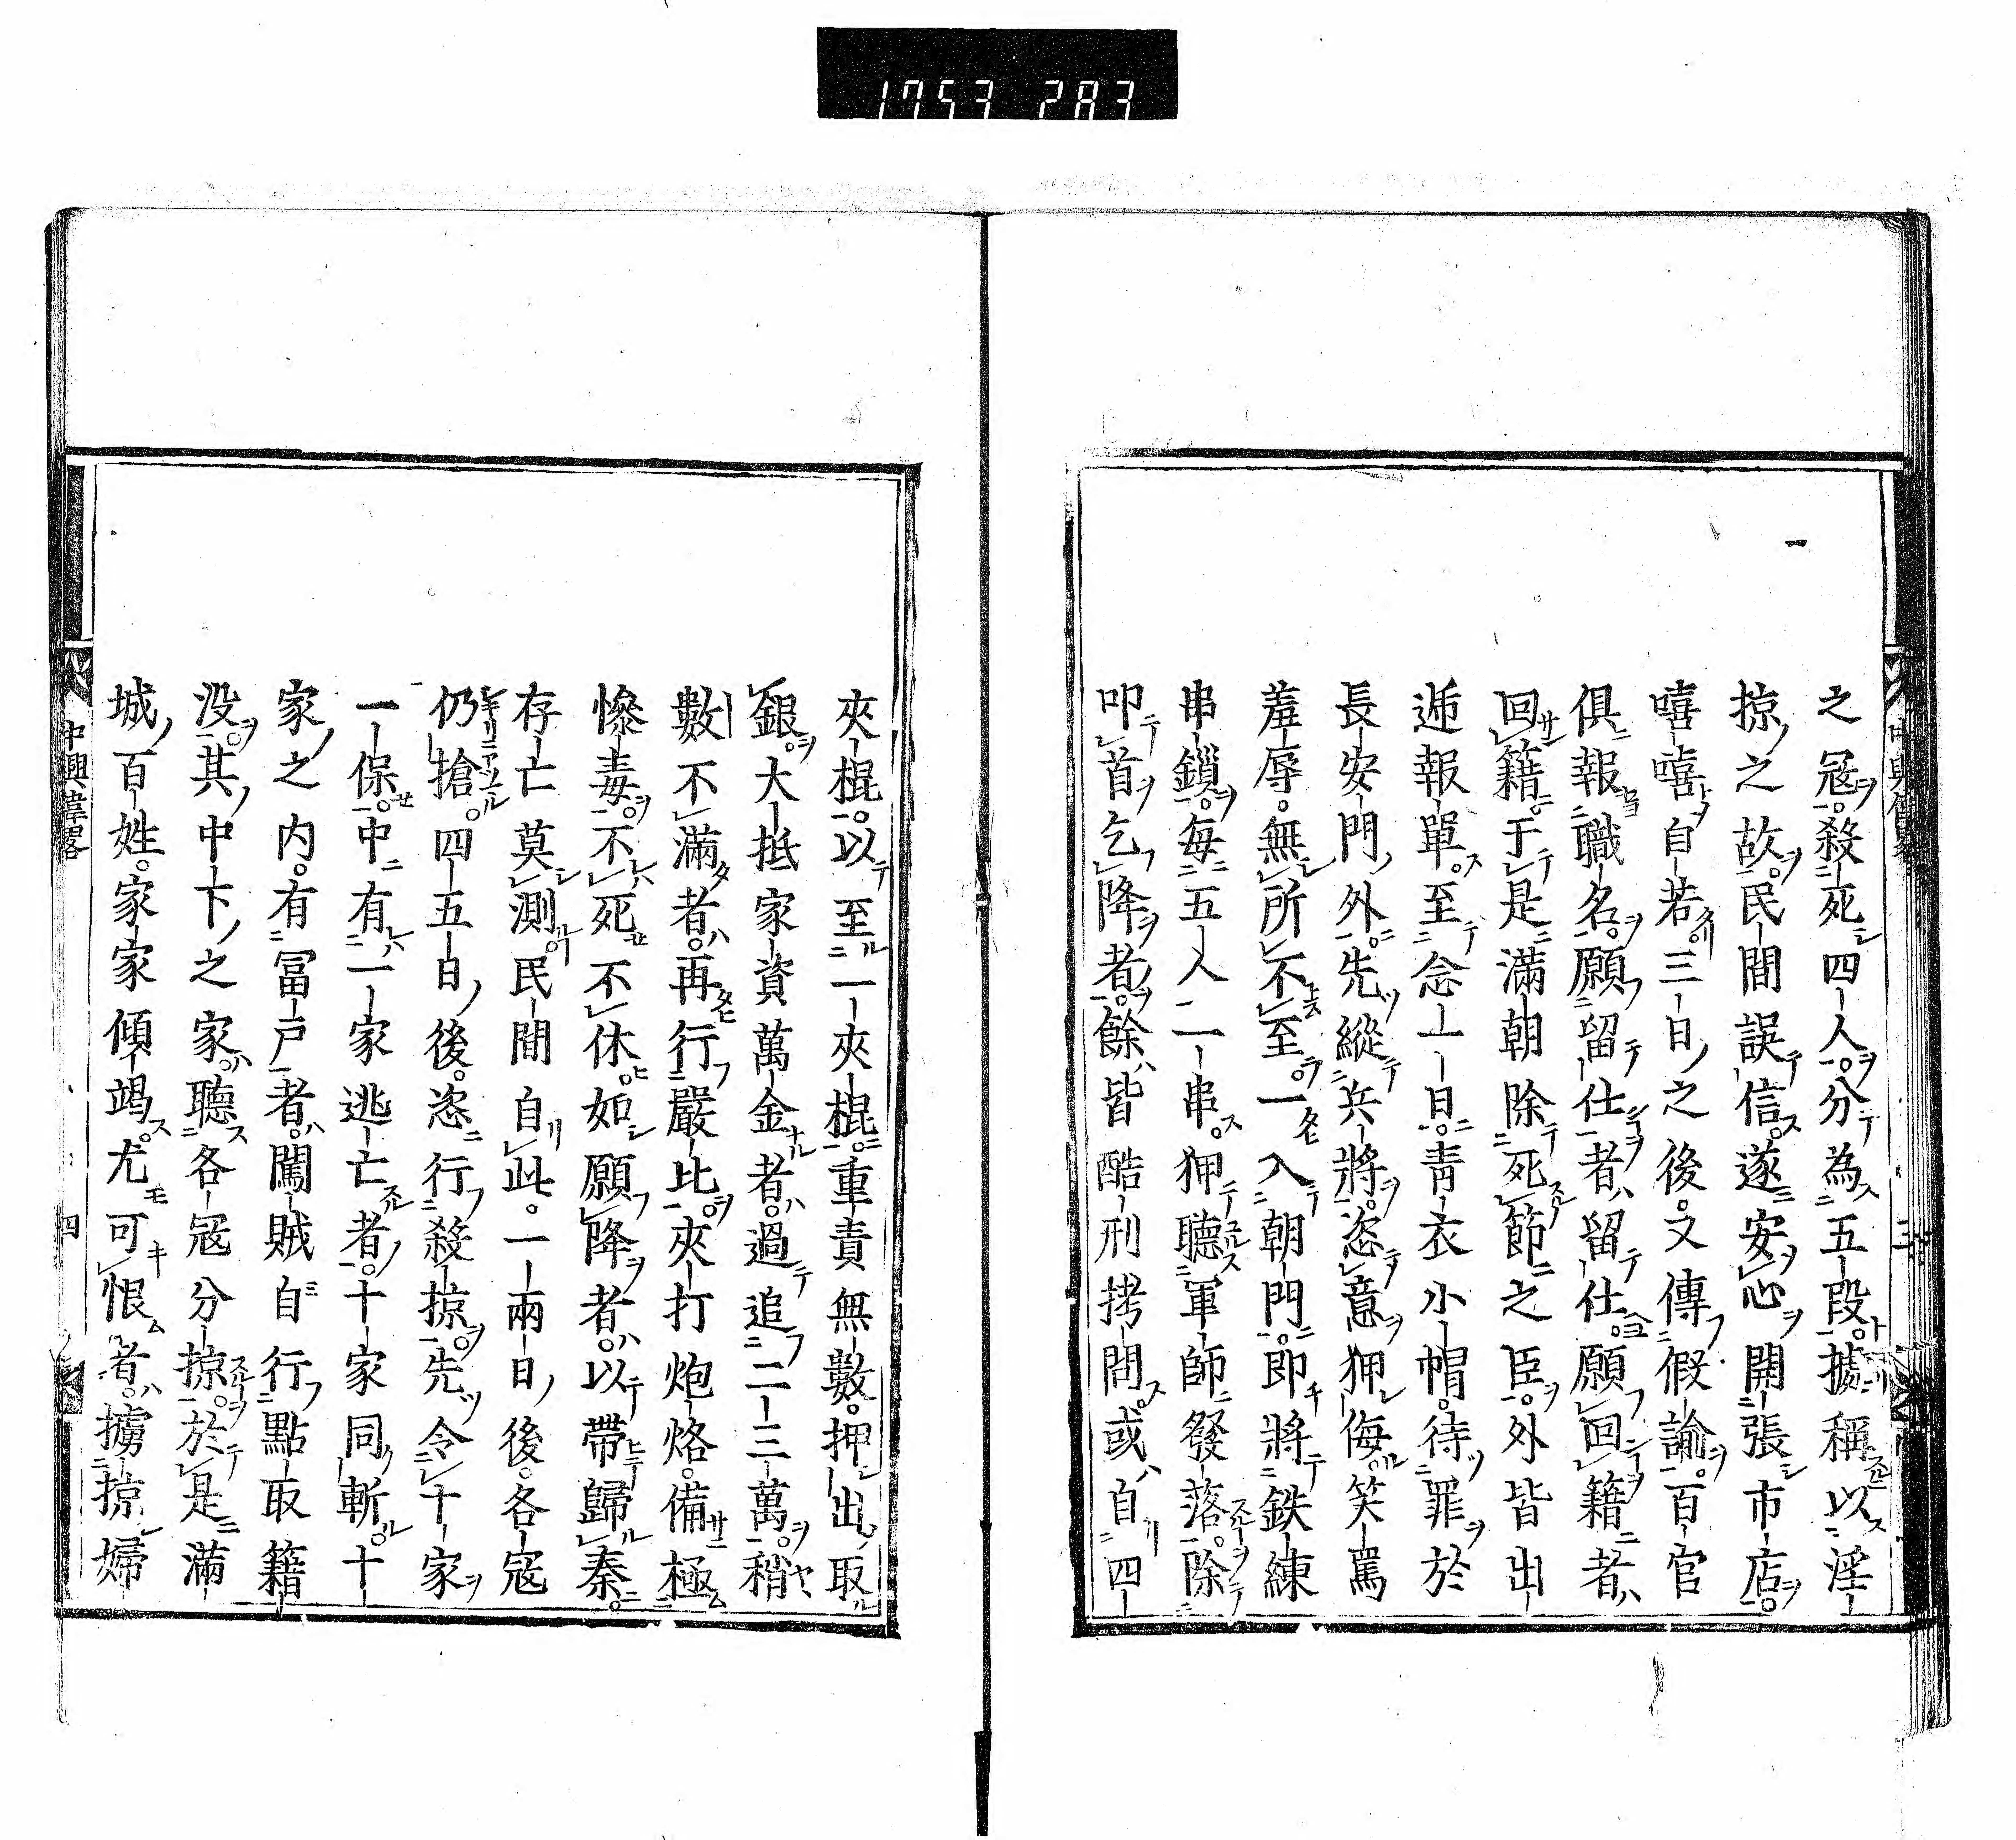 1753 283
之寇殺死四人分為五段據稱以淫
掠之故民間誤信遂安心開張市店
嘻嘻自若三日之後又傳假諭百官
俱報職名願留仕者留仕願回籍者
回籍于是滿朝除死節之臣外皆出
遞報單至念一日青衣小帽待罪於
長安門外先縱兵將恣意狎侮笑罵
羞辱無所不至一入朝門即將鉄練
串鎖每五人二串狎聽軍師發落除
叩首乞降者餘皆酷刑拷問或自四
夾棍以至一夾棍重責無數押出取
銀大抵家資萬金者過追二三萬稍
數不滿者再行嚴比夾打炮烙備極
慘毒不死不休如願降者以帶歸秦
存亡莫測民間自此一兩日後各寇
仍搶四五日後恣行殺掠先令十家
一保中有一家逃亡者十家同斬十
家之內有冨戶者闖賊自行點取籍
没其中下之家聽各寇分掠於是滿
城百姓家家傾竭尤可恨者擄掠婦
中興偉畧
四